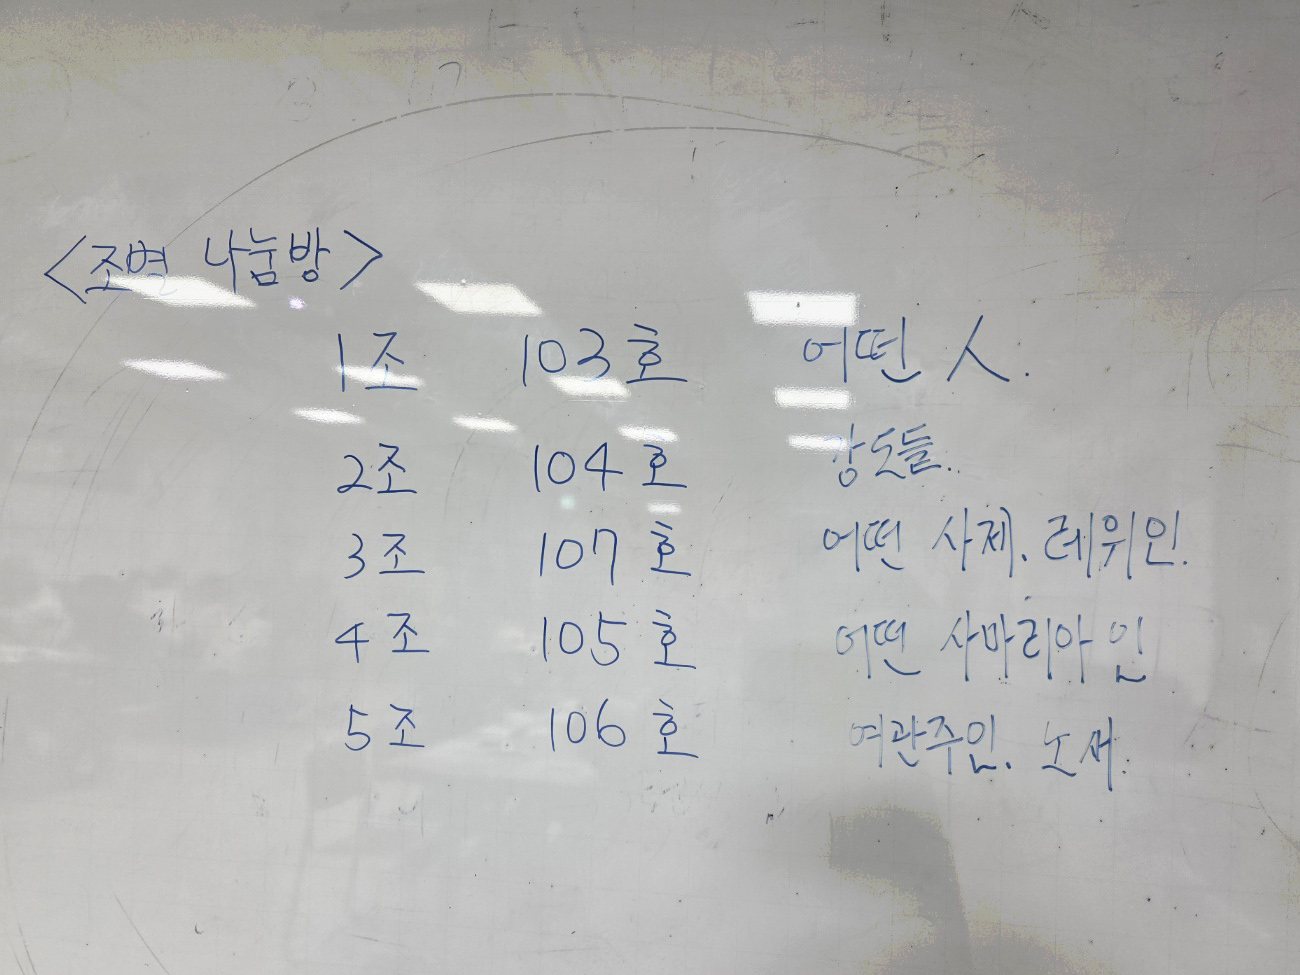 <조별 나눔방>
1조 103호 어떤 人.
2조 104호 강도들..
3조 107호 어떤 사제. 레위인.
4조 105호 어떤 사마리아인
5조 106호 여관주인. 노새.